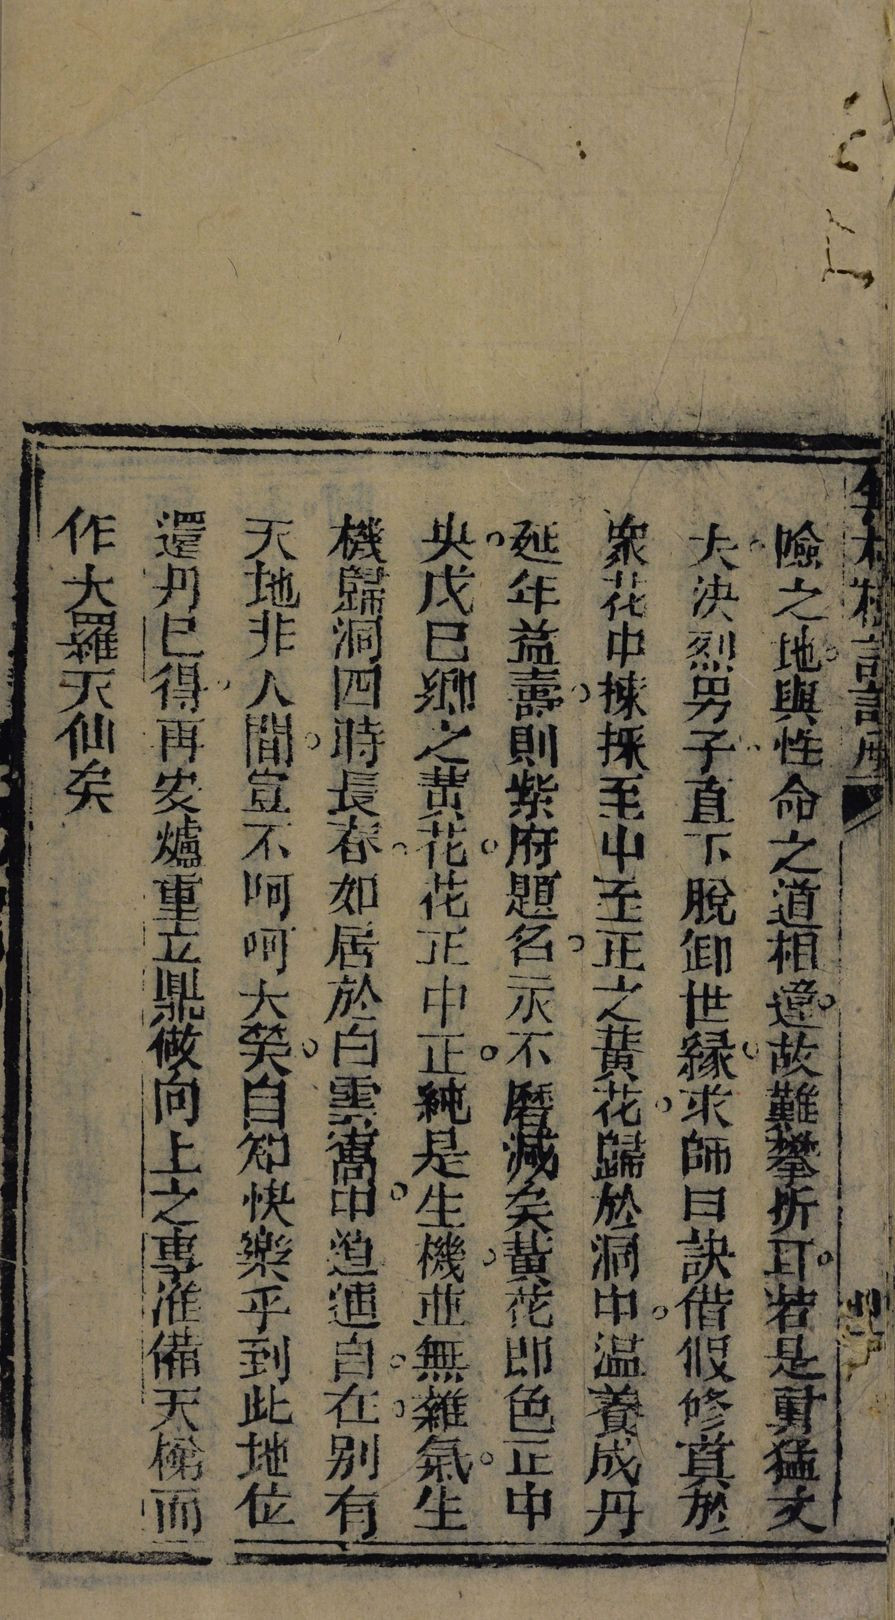 險之地與性命之道相違故難攀折耳若是勇猛丈
夫決烈男子直下脫卸世緣求師口訣借假修真於
衆花中揀採至中至正之黃花歸於洞中溫養成丹
延年益壽則紫府題名永不磨滅矣黃花卽色正中
央戊己鄉之黃花花正中正純是生機並無雜氣生
機歸洞四時長春如居於白雲窩中逍遙自在別有
天地非人間豈不呵呵大笑自知快樂乎到此地位
還丹已得再安爐重立鼎做向上之事准備天梯而
作大羅天仙矣